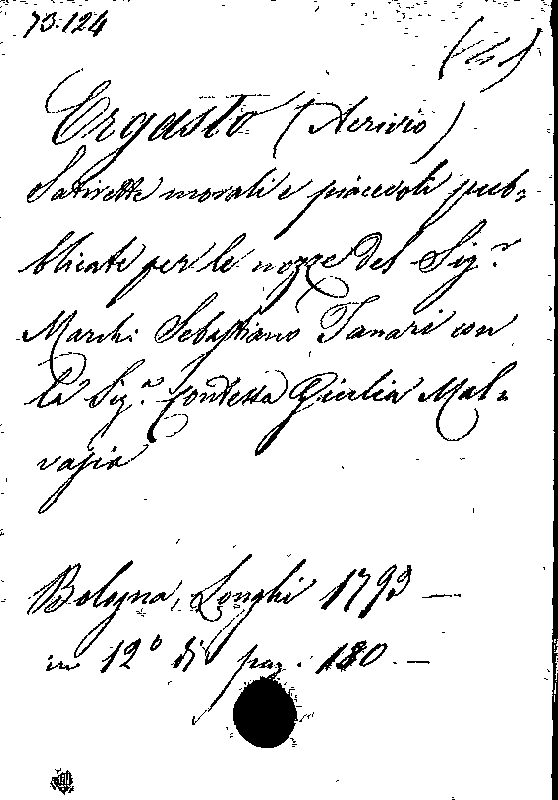 73.124
Ergasto (Acrivio)
Satirette morali e piacevoli pub-
blicate per le nozze del Sig.r
March: Sebastiano Tanari con
la Sig.a Contessa Giulia Mal-
vasia
Bologna, Longhi 1793 —
in 12° di pag. 180. —